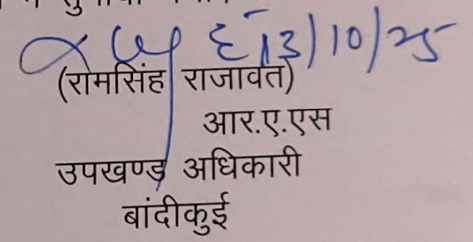 13/10/25
(रामसिंह राजावत)
आर.ए.एस
उपखण्ड अधिकारी
बांदीकुई